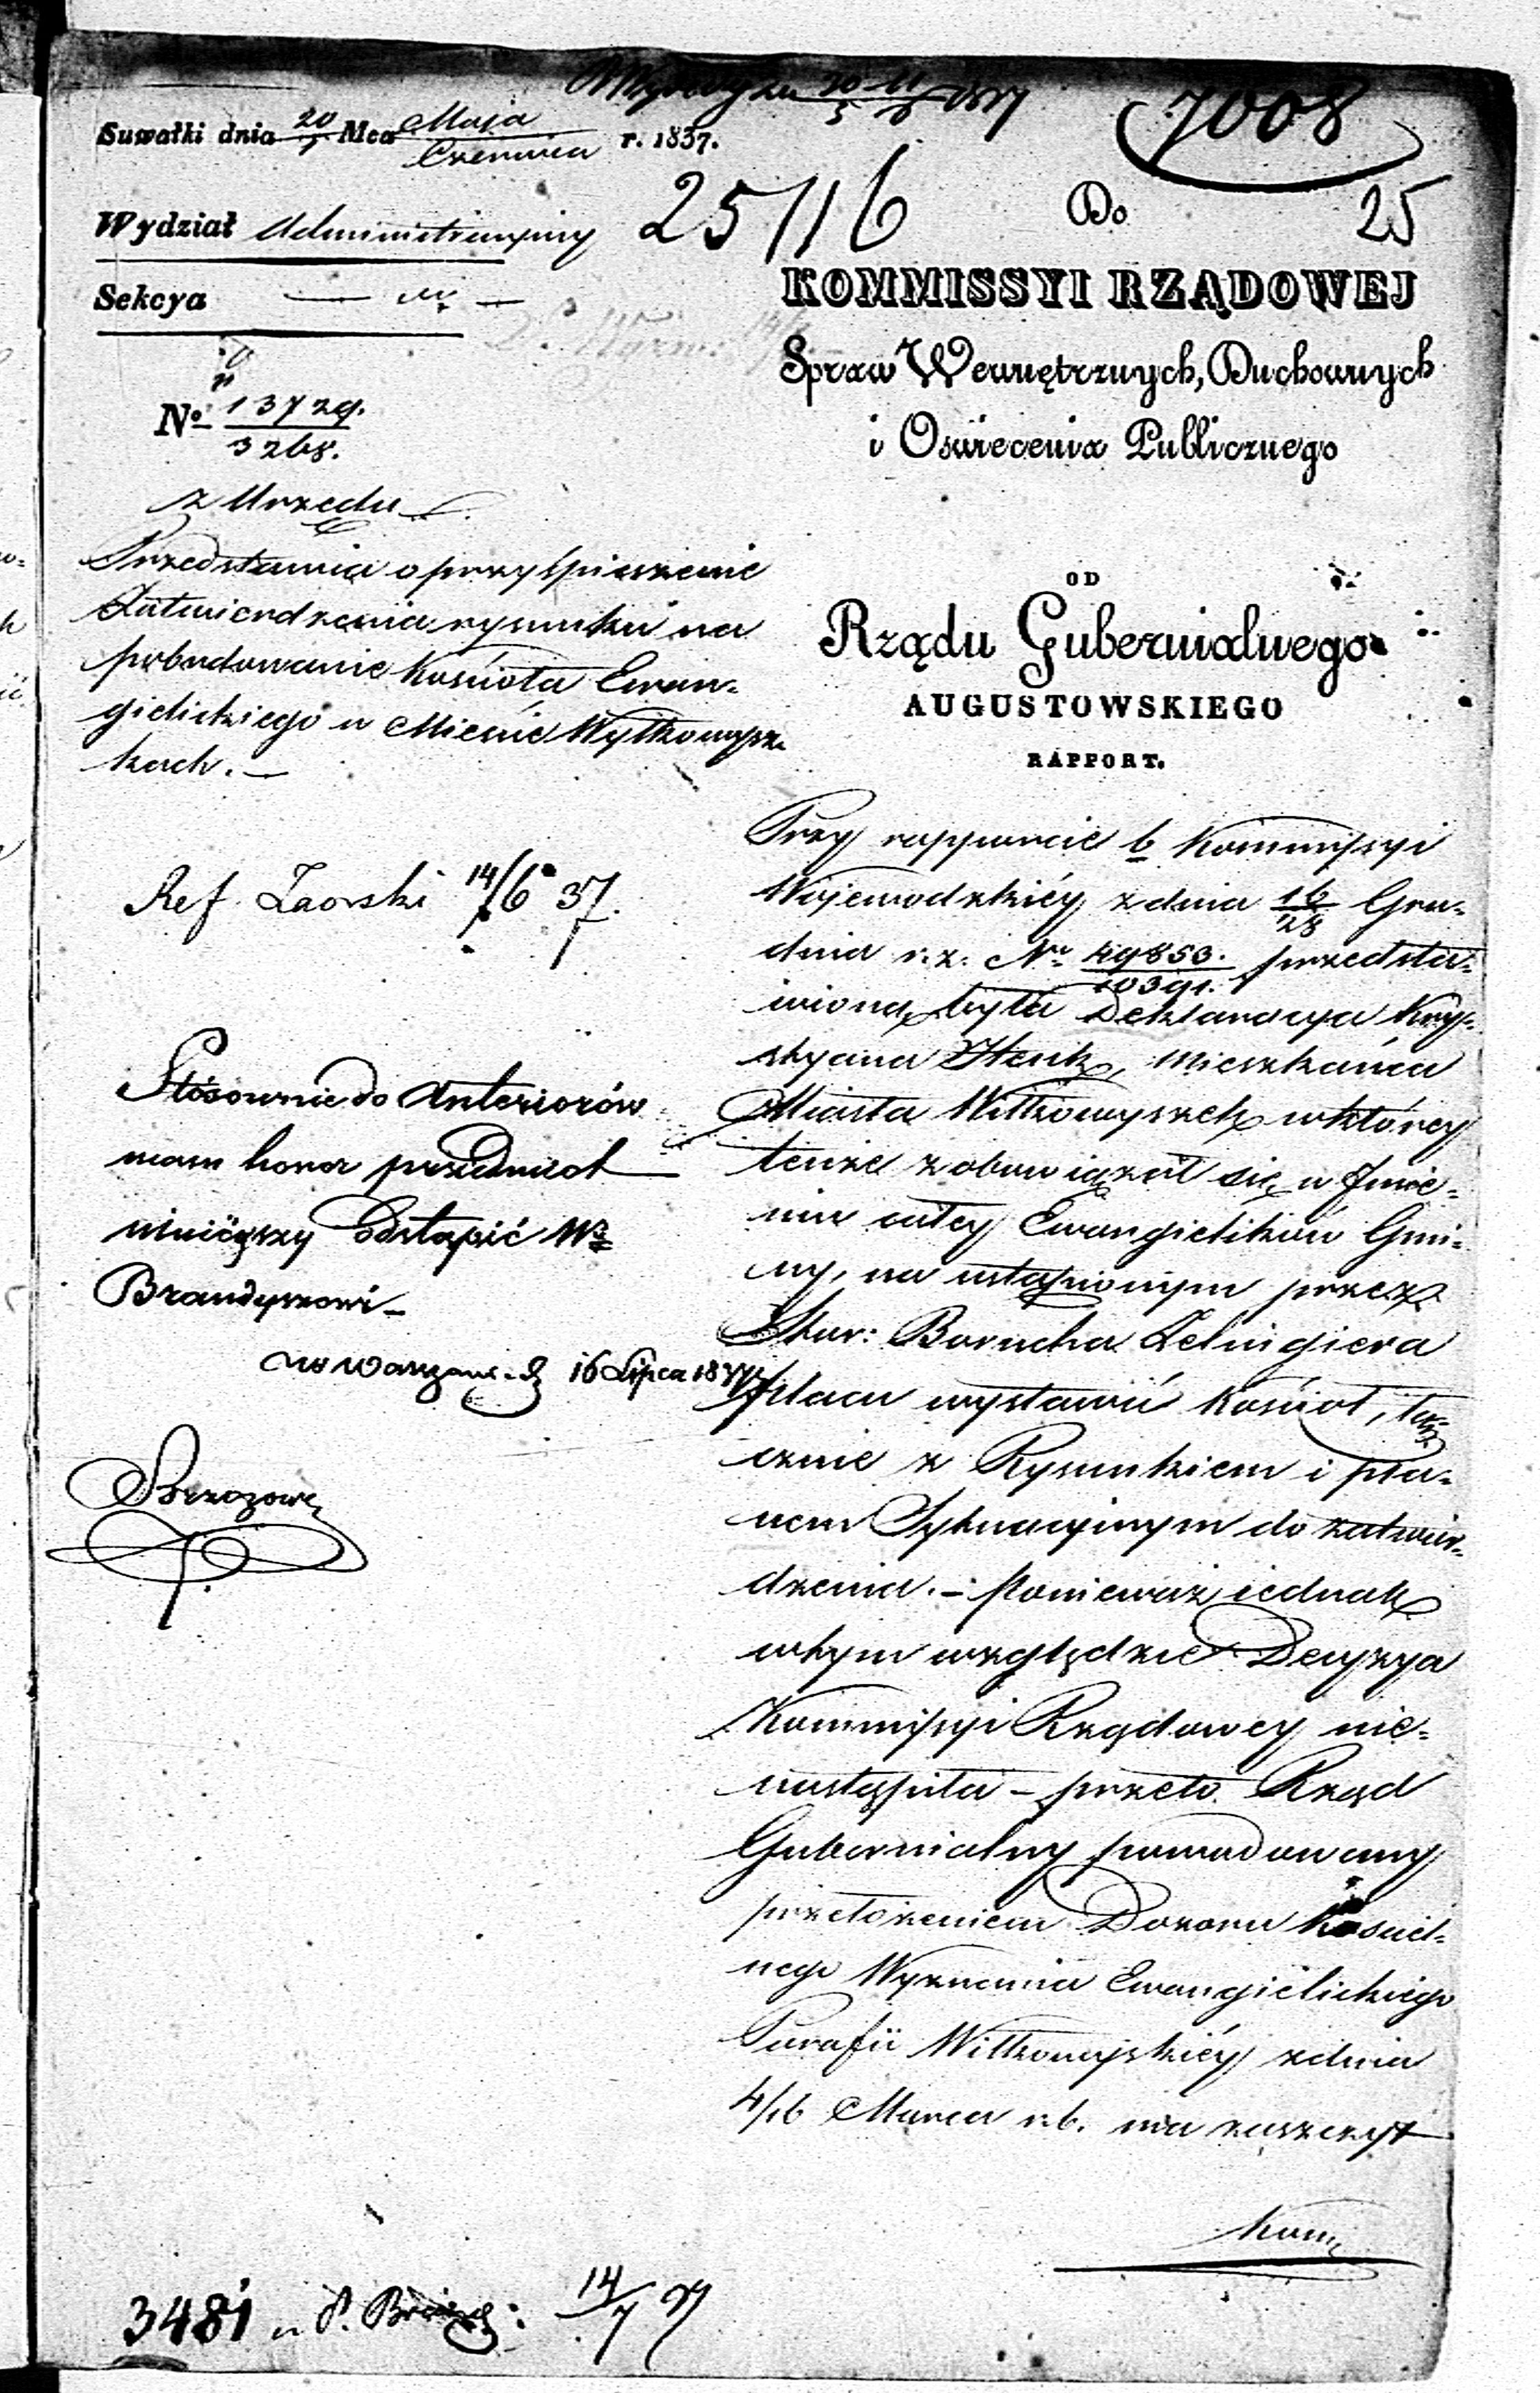 7008
Suwałki dnia 20/1 Mca Maja/Czerwca r. 1837.
25116
Do
25
Wydział Administracyjny
KOMMISSYI RZĄDOWEJ
Sekcya
Spraw Wewnętrznych, Duchownych
i Oświecenia Publicznego
No 13729.
3268.
z Urzędu
Przedstawia o przyśpieszenie
Zatwierdzenia rysunku na
pobudowanie Kościoła Ewan-
gielickiego w Mieście Wyłkowysz-
kach. —
OD
Rządu Gubernialnego
AUGUSTOWSKIEGO
RAPPORT.
Ref. Zaorski 14/6 37.
Stósownie do Anteriorów
mam honor przedmiot
ninieyszy Odstąpić Wu
Brandyszowi —
w Warszawie d. 16 Lipca 1837
Przy rapporcie b. Kommissyi
Wojewodzkiéy z dnia 16/28 Gru-
dnia r. z. No 49853./10391. przedsta-
wioną była Deklaracya Kry-
styana, Mieszkańca
Miasta Wiłkowyszek w którey
tenże zobowiązał się w Jmie-
niu całey Ewangielików Gmi-
ny, na ustąpionym przez
Star: Borucha Zelingiera
placu wystawić Kościoł, łą-
cznie z Rysunkiem i pla-
nem Sytuacyinym do zatwier-
dzenia. — Ponieważ iednak
w tym względzie Decyzya
Kommissyi Rządowey nie-
nastąpiła — przeto Rząd
Gubernialny powodowany
przełożeniem Dozoru Kościel-
nego Wyznania Ewangielickiego
Parafii Wiłkowyskiéy z dnia
4/16 Marca r. b. ma zaszczyt
Kom:
3481 14/7 37